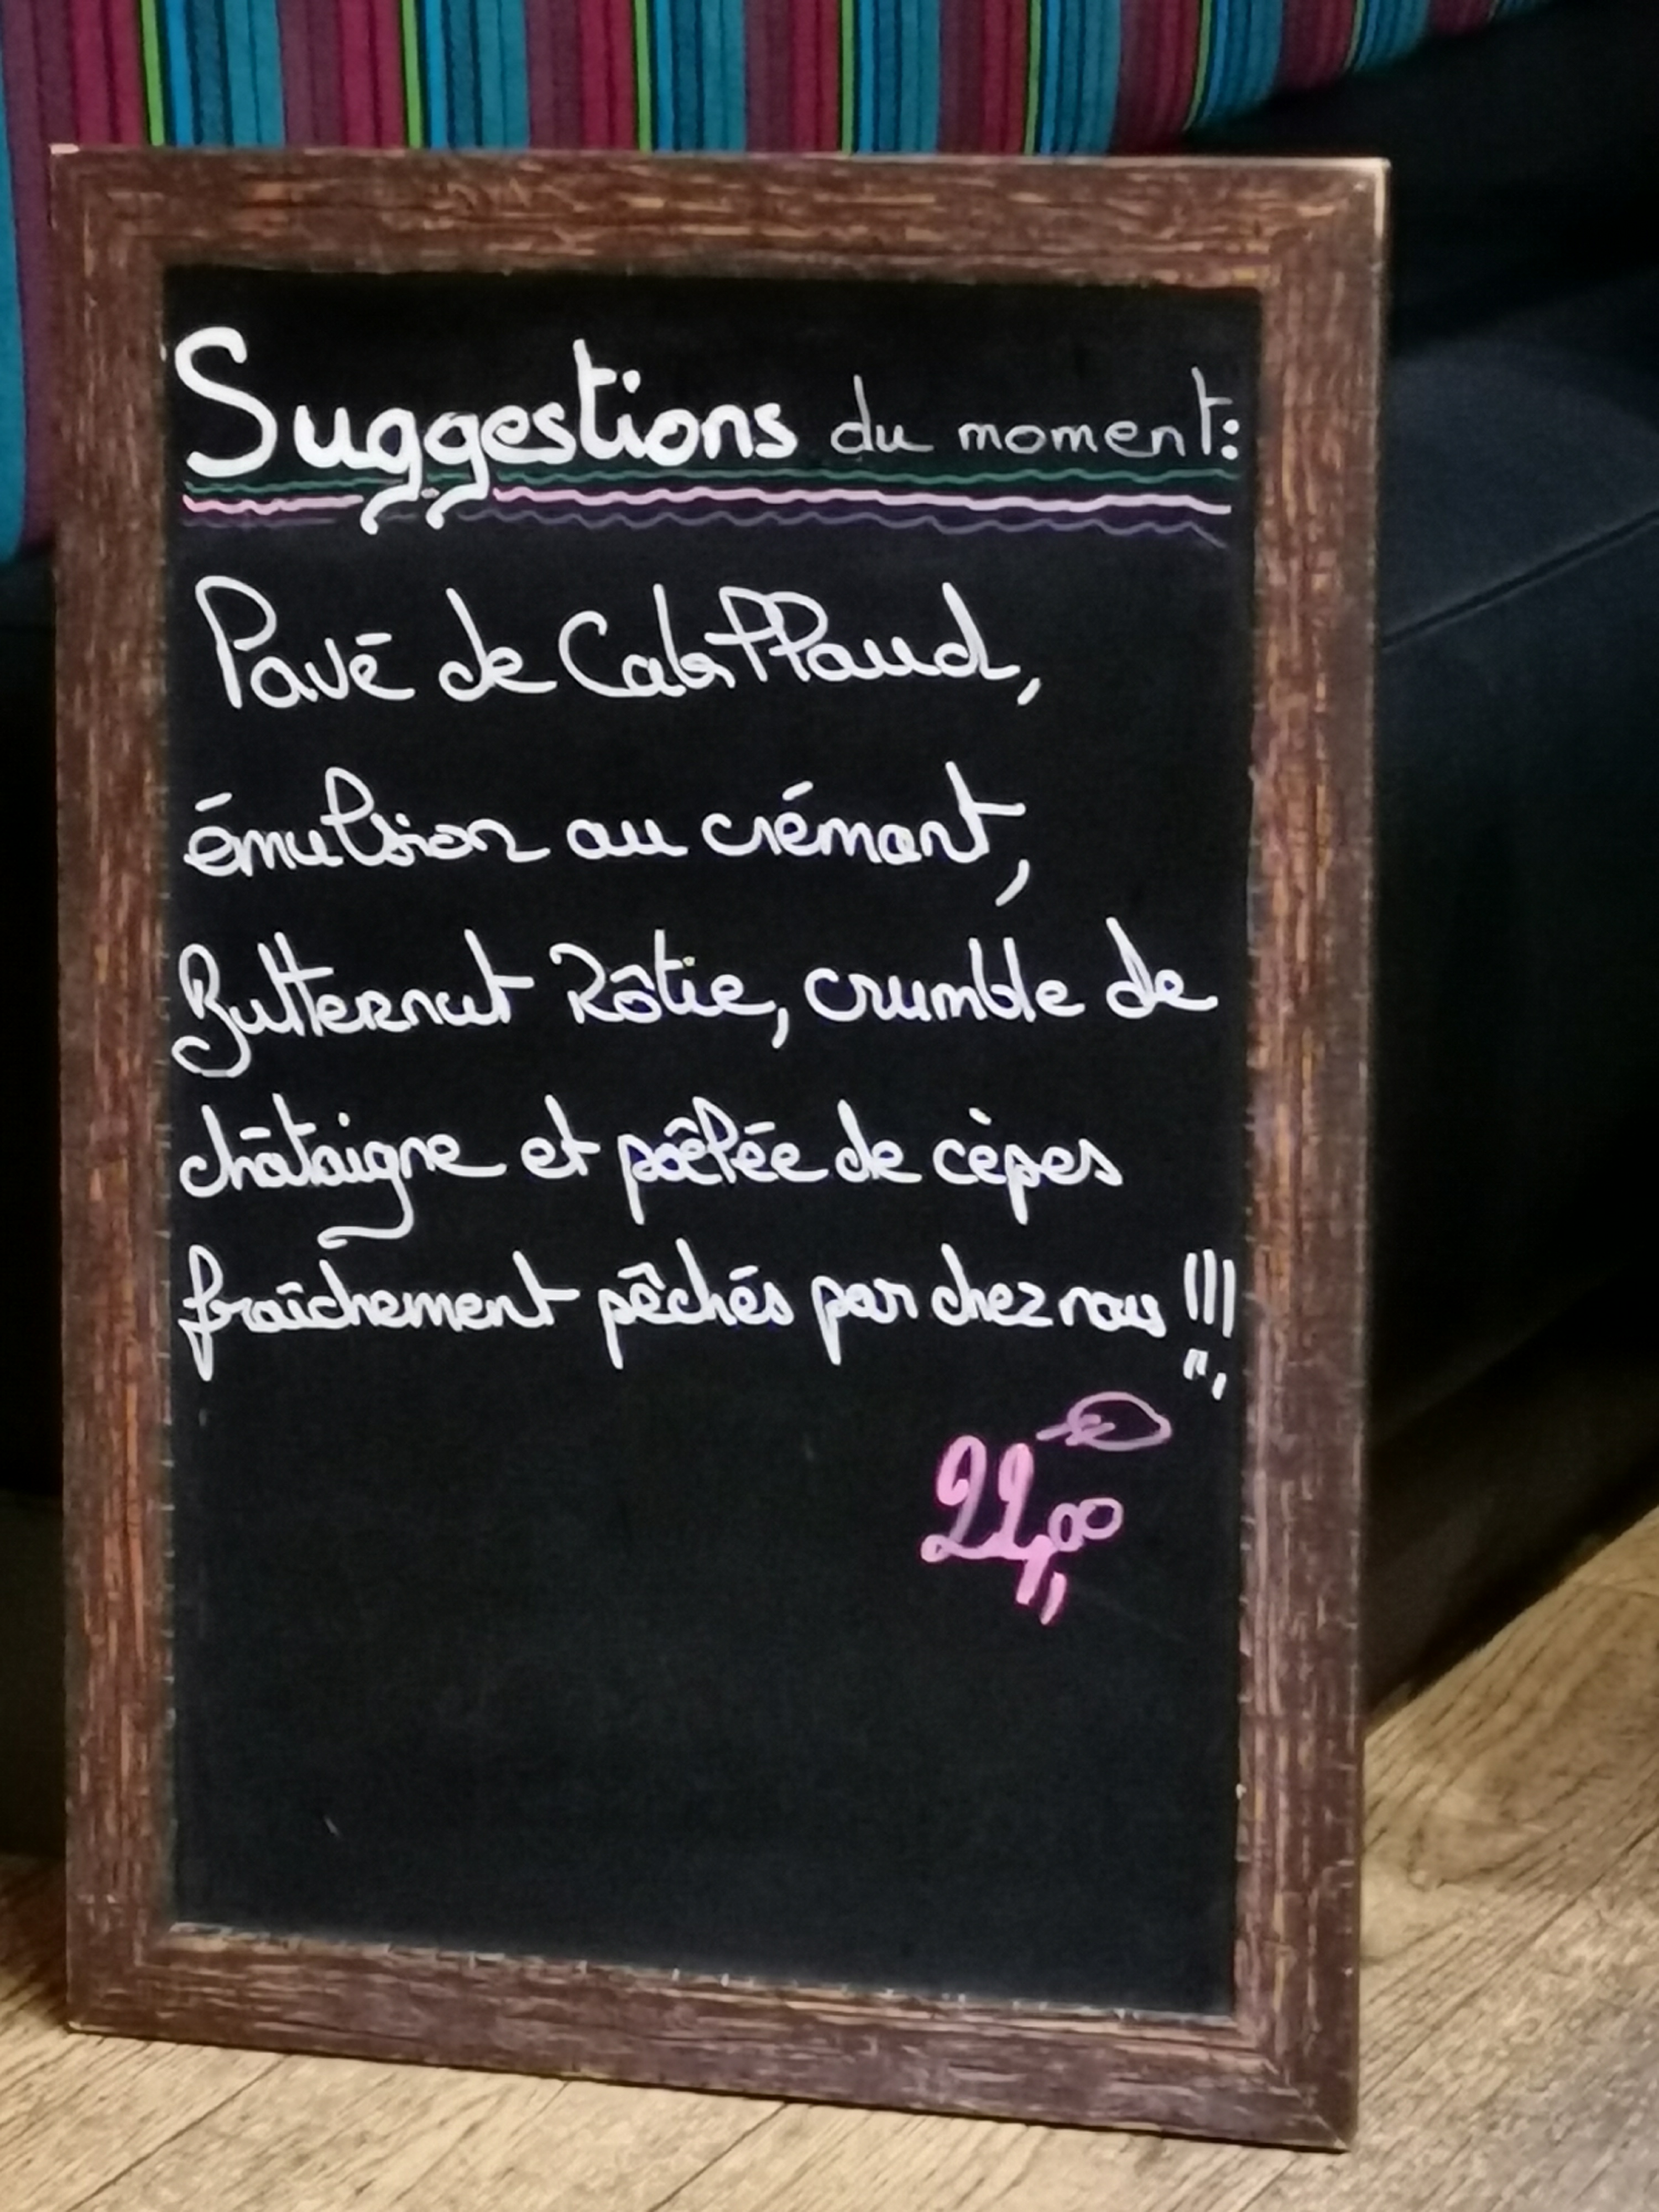 Suggestions du moment:
Pavé de Cabillaud,
émulsion au crémant,
Butternut Rôtie, crumble de
châtaigne et pôêlée de cèpes
fraîchement pêchés par chez nous !!!
22,00